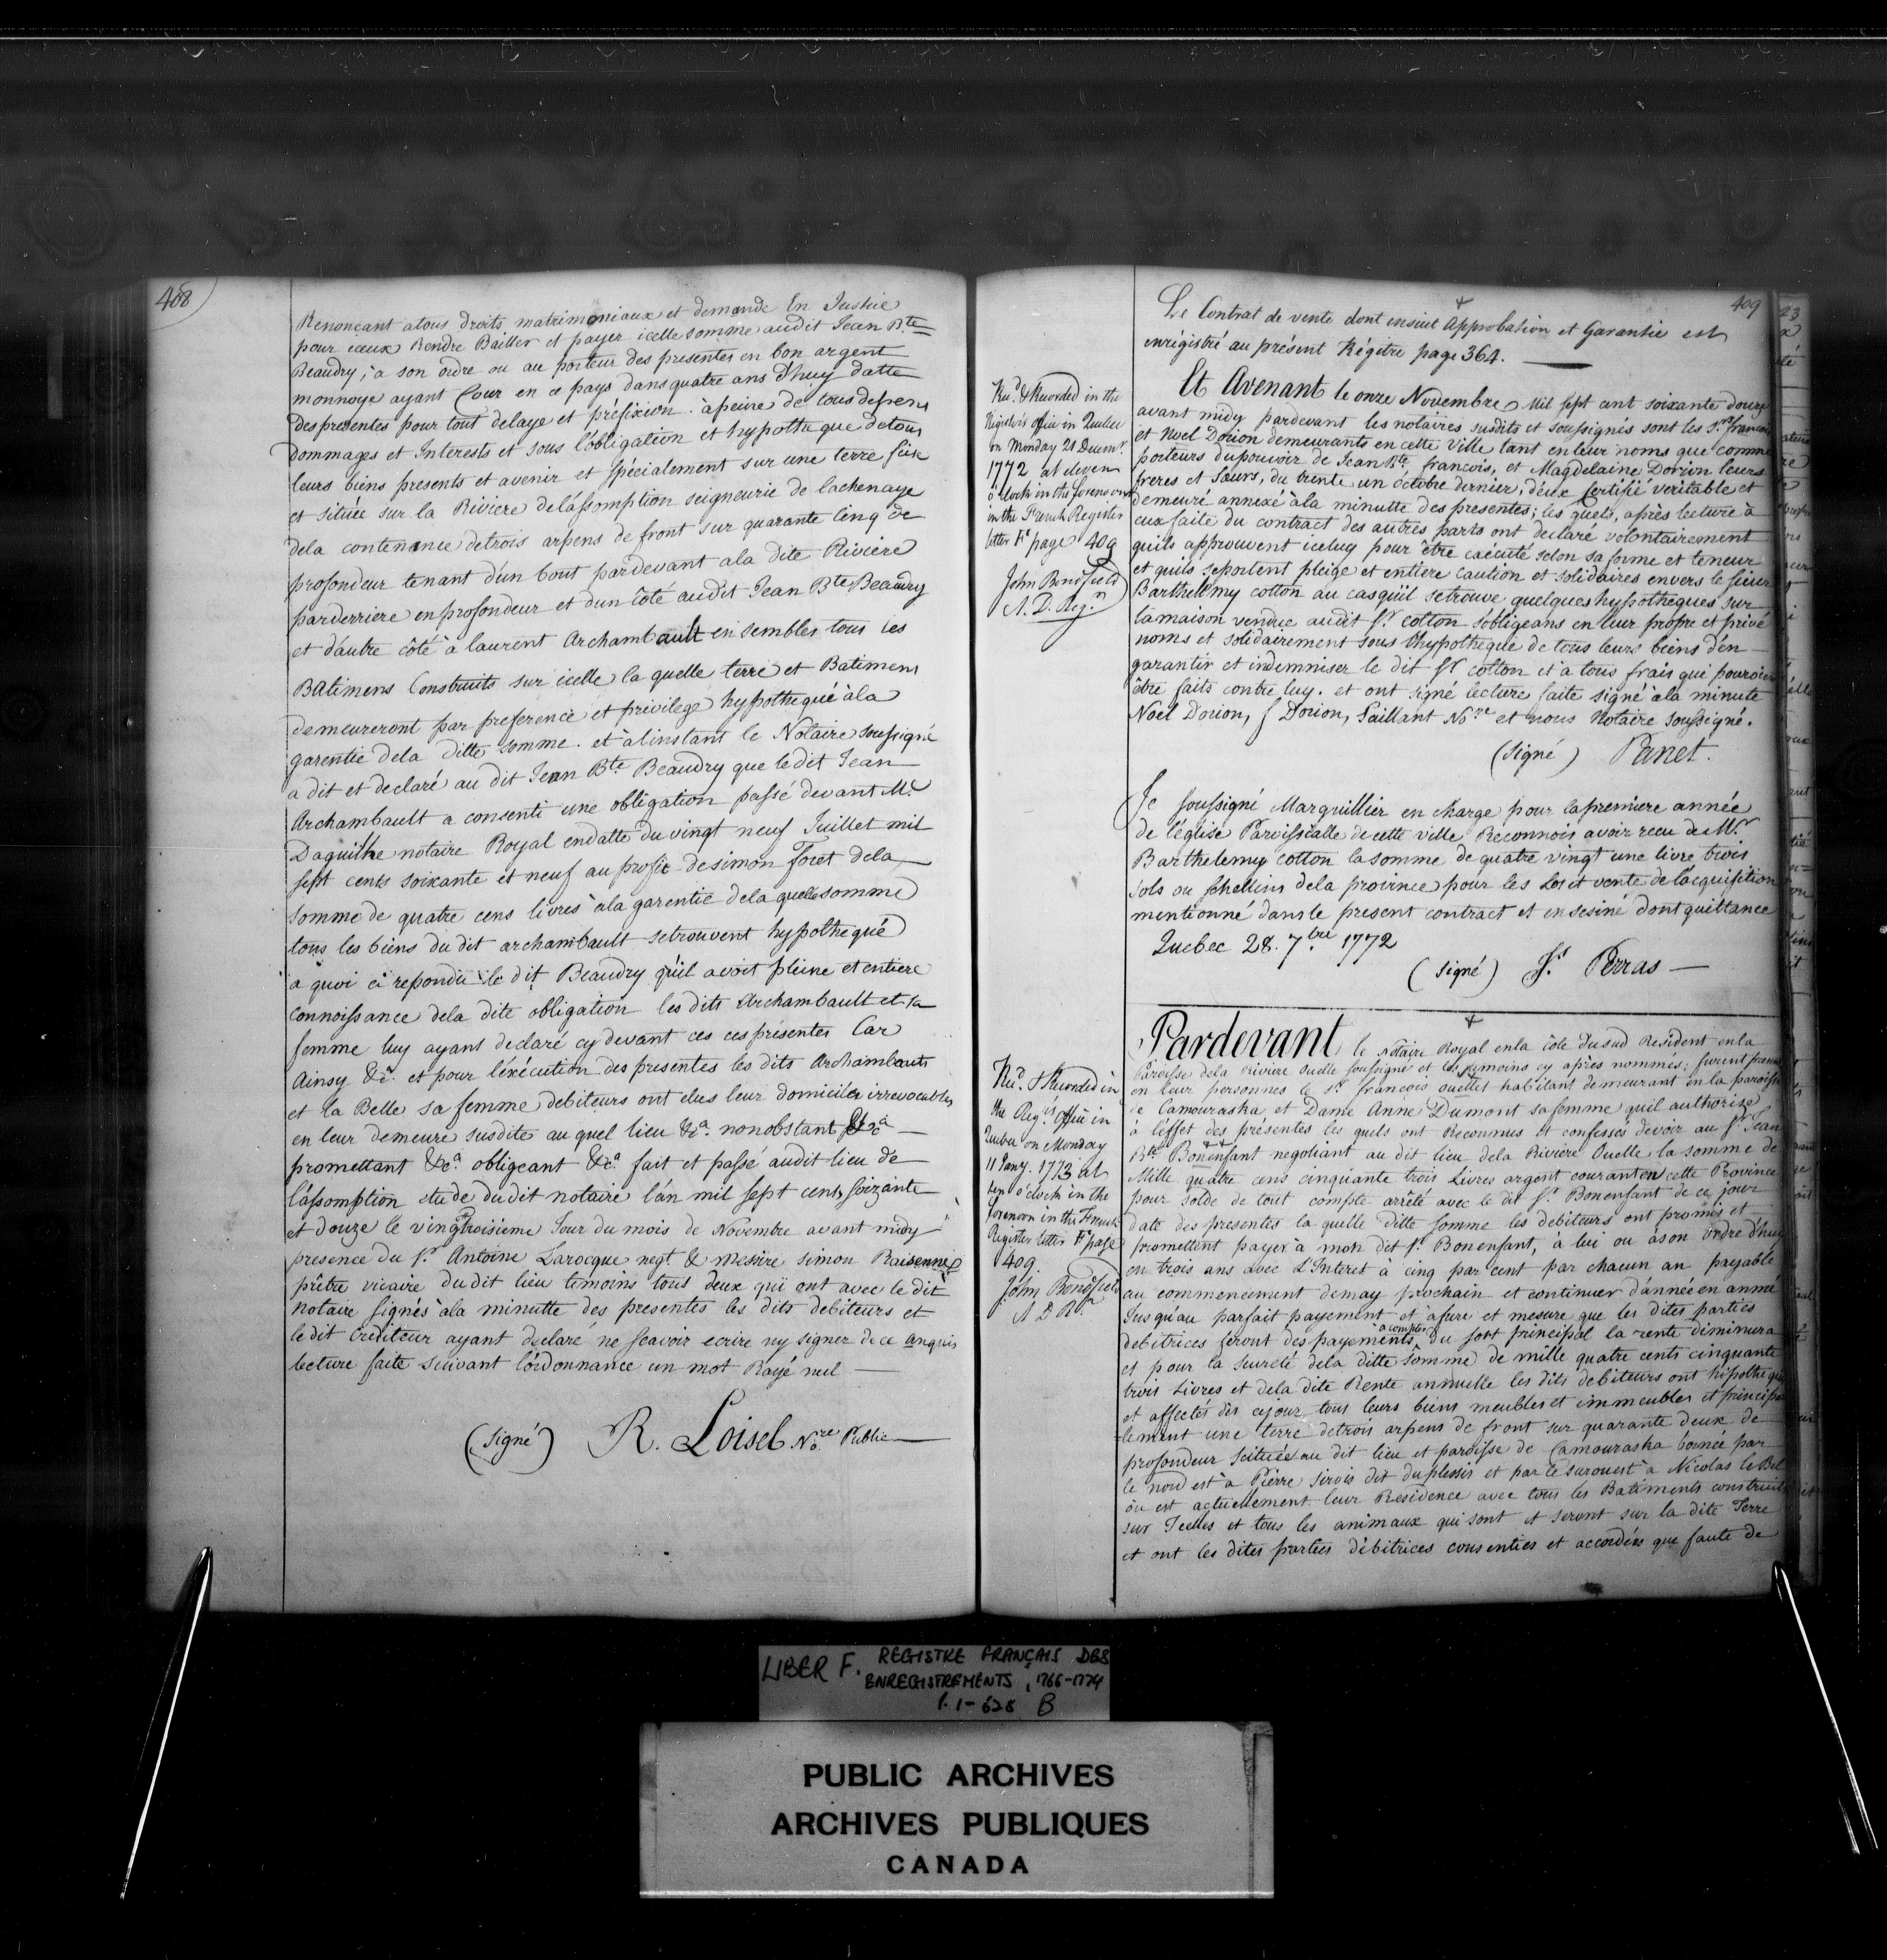 408
Renonçant atous droits matrimoniaux et demande En Justice
pour iceux Rendre Bailler et payer icelle somme audit Jean Bte
Beaudry; a son ordre ou au porteur des presentes en bon argent
monnoye ayant Cour en ce pays dans quatre ans d'huy datte
des presentes pour tout delaye et préfixion. à peine de tous depens
dommages et Interests et sous l'obligation et hypotheque de tous
leurs biens presents et avenir et spécialement sur une terre sise
et située sur la Riviere delassomption seigneurie de lachenaye
dela contenance detrois arpens de front sur quarante Cinq de
profondeur tenant d'un bout pardevant ala dite Riviere
parderriere en profondeur et dun côté audit Jean Bte Beaudry
et d'autre côté à laurent Archambault ensembles tous les
Batimens Construits sur icelle la quelle terre et Batimens
demeureront par preference et privilege hypothequé àla
garentie dela ditte somme. et àlinstant le Notaire soussigné
a dit et declaré au dit Jean Bte Beaudry que ledit Jean
Archambault a consenti une obligation passé devant Me
Daguilhe notaire Royal endatte du vingt neuf Juillet mil
sept cents soixante et neuf au profit de simon foret dela
somme de quatre cens livres àla garentie dela quelle somme
tous les biens du dit archambault setrouvent hypothequé
a quoi a repondu le dit Beaudry qu'il avoit pleine et entiere
connoissance dela dite obligation les dits Archambault et sa
femme luy ayant declaré cy devant ces ces présentes Car
Ainsy &ca. et pour l'éxécution des presentes les dits Archambault
et la Belle sa femme debiteurs ont elus leur domiciles irrevocables
en leur demeure susdite au quel lieu &ca. nonobstant &ca
promettant &ca. obligeant &ca. fait et passé audit lieu de
l'assomption etude dudit notaire l'an mil sept cents soixante
et douze le vingttroisieme Jour du mois de Novembre avant midy
presence du Sr. Antoine Larocque negt. & messire simon Raisenne
prêtre vicaire dudit lieu temoins tous deux qui ont avec le dit
notaire signés àla minutte des presentes les dits debiteurs et
ledit Créditeur ayant declaré ne sçavoir ecrire ny signer de ce enquis
lecture faite suivant l'ordonnance un mot Rayé nul
(Signé) R. Loisel Nore Public
409
Le Contrat de vente dont ensuit Approbation et Garantie est
enrégistré au présent Régitre page 364.
Recd. & Recorded in the
Register's office in Quebec
on Monday 21 Decemr.
1772 at eleven
o'clock in the forenoon
in the French Register
letter F page 409
John Bonefield
A. D. Regr.
Et Avenant le onze Novembre Mil sept cent soixante douze
avant midy pardevant les notaires susdits et soussignés sont les Srs. francois
et Noel Dorion demeurants en cette Ville tant en leur noms que comme
porteurs dupouvoir de Jean Bte. francois, et Magdelaine Dorion leurs
freres et Sœurs, du trente un octobre dernier, d'eux Certifié veritable et
demeuré annexé àla minutte des presentes; les quels, après lecture à
eux faite du contract des autres parts ont declaré volontairement
quils approuvent iceluy pour être éxécuté selon sa forme et teneur
et quils seportent pleige et entiere Caution et solidaires envers le sieur
Barthelemy cotton au cas qu'il se trouve quelques hypotheques sur
lamaison vendue audit Sr. cotton s'obligeans en leur propre et privé
noms et solidairement sous lhypotheque de tous leurs biens d'en
garantir et indemniser le dit Sr. cotton et à tous frais qui pouroient
être faits contre luy. et ont signé lecture faite signé àla minute
Noel Dorion, f Dorion, Saillant Nore et nous Notaire soussigné.
(Signé) Panet.
Je soussigné Marguillier en charge pour la premiere année
de l'église Paroissialle de cette ville Reconnois avoir recu de Mr.
Barthelemy cotton la somme de quatre vingt une livre trois
sols ou schellins dela province pour les Los et vente de lacquisition
mentionné dans le present contract et ensesiné dont quittance
Quebec 28. 7.bre 1772
(Signé) Js. Perras
Recd. & Recorded in
the Regrs. Office in
Quebec on Monday
11 Jany. 1773 at
ten o'clock in the
forenoon in the French
Register letter F page
409.
John Bonefield
A D Rr.
Pardevant le Notaire Royal enla côte dusud Resident enla
Paroisse dela Riviere Ouelle soussigné et les temoins cy après nommés; furent presens
en leur personnes le Sr. françois ouellet habitant demeurant en la paroisse
de Camouraska et Dame Anne Dumont sa femme quil authorise
à l'éffet des présentes les quels ont Reconnus et confessés devoir au Sr. Jean
Bte. Bonenfant negotiant au dit lieu dela Riviere Ouelle la somme de
Mille quatre cens cinquante trois Livres argent courant en cette Province
pour solde de tout compte arrêté avec le dit Sr. Bonenfant de ce jour
date des presentes la quelle ditte somme les debiteurs ont promis et
promettent payer à mon dit Sr. Bonenfant, à lui ou àson ordre d'huy
en trois ans avec L'Interet à cinq par cent par chacun an payable
au commencement demay prochain et continuer d'année en année
Jusqu'au parfait payement et àfure et mesure que les dites parties
debitrices feront des payements à comptes du sort principal la rente diminura
et pour la seureté dela ditte somme de mille quatre cents cinquante
trois Livres et dela dite Rente annuelle les dits debiteurs ont hipothequé
et affectés dès cejour tous leurs biens meubles et immeubles et principa
lement une terre detrois arpens de front sur quarante deux de
profondeur scituée au dit lieu et paroisse de Camouraska bornée par
le nord est à Pierre Sirois dit duplessis et par le surouest à Nicolas Le Bel
ôu est actuellement leur Residence avec tous les Batiments construits
sur Icelles et tous les animaux qui sont et seront sur la dite Terre
et ont les dites parties débitrices consenties et accordées que faute de
LIBER F. REGISTRE FRANÇAIS DES
ENREGISTREMENTS, 1766-1774
p. 1-628 B
PUBLIC ARCHIVES
ARCHIVES PUBLIQUES
CANADA